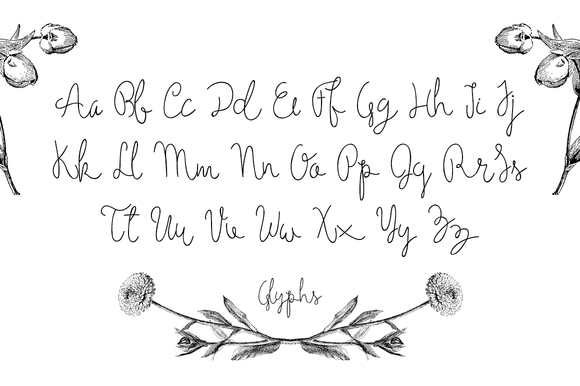 Aa Bb Cc Dd Ee Ff Gg Hh Ii Jj
Kk Ll Mm Nn Oo Pp Qq Rr Ss
Tt Uu Vv Ww Xx Yy Zz
Glyphs